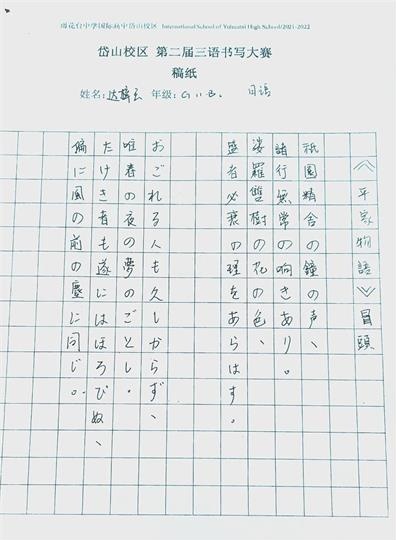 雨花台中学国际高中岱山校区 International School of Yuhuatai High School/2021-2022
岱山校区 第二届三语书写大赛
稿纸
姓名: 年级: G11B. 日语
《平家物語》冒頭
祇園精舎の鐘の声、
諸行無常の响きあり。
娑羅雙樹の花の色、
盛者必衰の理をあらはす。
おごれる人も久しからず、
唯春の夜の夢のごとし。
たけき者も遂にはほろびぬ、
偏に風の前の塵に同じ。